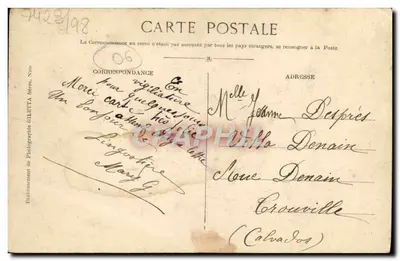 7423/98
CARTE POSTALE
La Correspondance au recto n'étant pas acceptée par tous les pays étrangers, se renseigner à la Poste
06
CORRESPONDANCE
ADRESSE
En
vigiliature
pour quelques jours
Merci carte
Un bonjour
Mary G.
Melle Jeanne Després
Villa Denain
Rue Denain
Trouville
(Calvados)
Etablissement de Photographie GILETTA frères, Nice